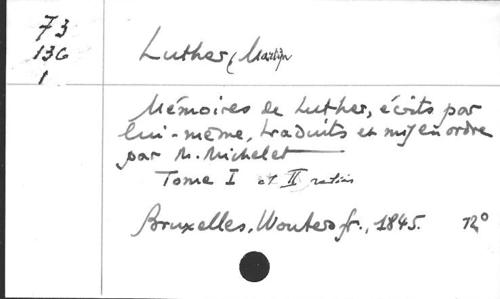 73
136
1
Luther, Martin
Mémoires de Luther, écrits par
lui-même, traduits et mis en ordre
par M. Michelet
Tome I et II reliés
Bruxelles, Wouters fr., 1845. 12°